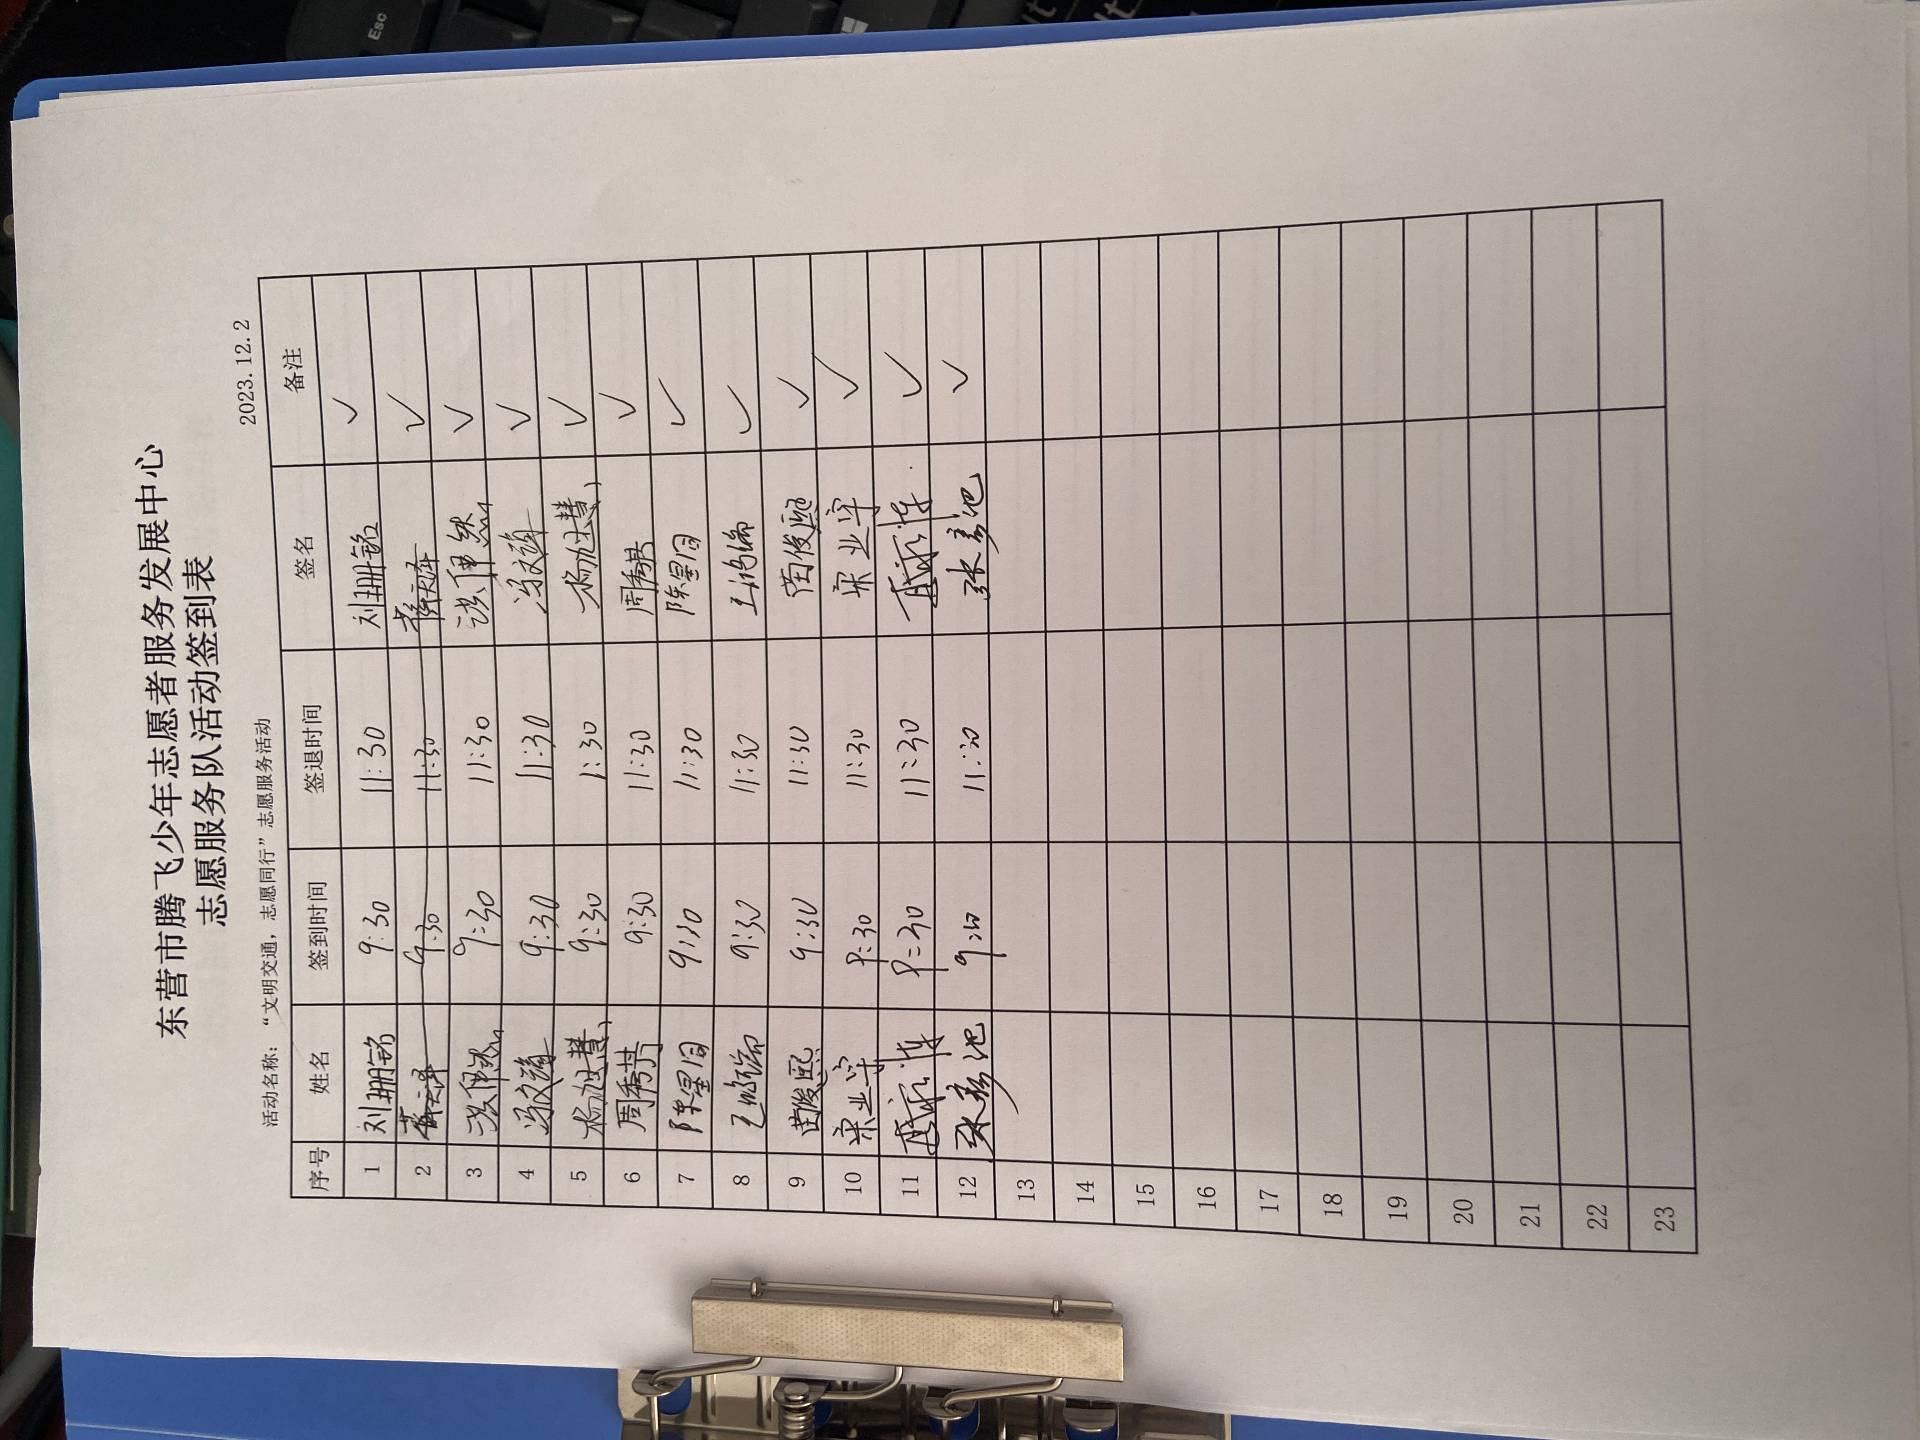 东营市腾飞少年志愿者服务发展中心
志愿服务队活动签到表
2023.12.2
活动名称：“文明交通，志愿同行”志愿服务活动
序号 姓名 签到时间 签退时间 签名 备注
1 刘珊铭 9:30 11:30 刘珊铭 ✓
2 9:30 11:30 ✓
3 洪伊然 9:30 11:30 洪伊然 ✓
4 9:30 11:30 ✓
5 杨旭慧 9:30 1:30 杨旭慧 ✓
6 周秀其 9:30 11:30 周秀其 ✓
7 陈星回 9:30 11:30 陈星回 ✓
8 9:30 11:30 ✓
9 苗俊熙 9:30 11:30 苗俊熙 ✓
10 宋业宇 9:30 11:30 宋业宇 ✓
11 9:30 11:30 ✓
12 张彦池 9:30 11:30 张彦池 ✓
13
14
15
16
17
18
19
20
21
22
23
Esc